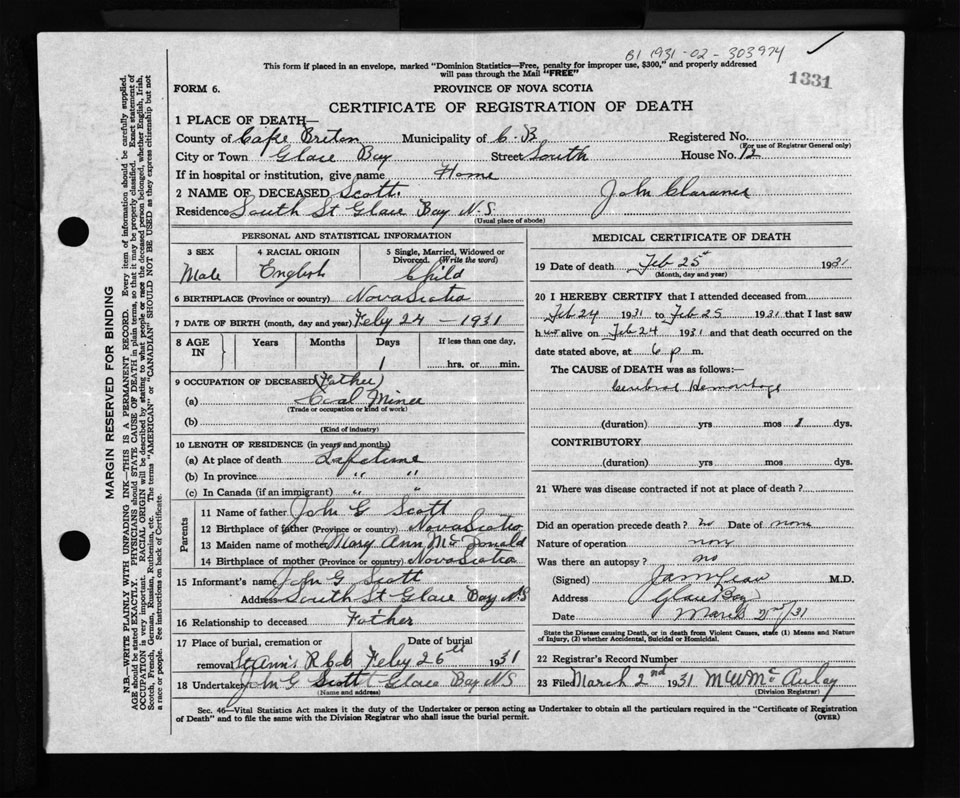 B1 1931-02-303974
1331
This form if placed in an envelope, marked "Dominion Statistics—Free, penalty for improper use, $300," and properly addressed
will pass through the Mail "FREE"
FORM 6. PROVINCE OF NOVA SCOTIA
CERTIFICATE OF REGISTRATION OF DEATH
1 PLACE OF DEATH—
County of Cape Breton Municipality of C. B Registered No.
(For use of Registrar General only)
City or Town Glace Bay Street South House No. 12
If in hospital or institution, give name Home
2 NAME OF DECEASED Scott John Clarance
Residence South St Glace Bay N.S
(Usual place of abode)
PERSONAL AND STATISTICAL INFORMATION
3 SEX 4 RACIAL ORIGIN 5 Single, Married, Widowed or
Divorced. (Write the word)
Male English Child
6 BIRTHPLACE (Province or country) Nova Scotia
7 DATE OF BIRTH (month, day and year) Feby 24 - 1931
8 AGE IN Years Months Days If less than one day,
1 hrs. or min.
9 OCCUPATION OF DECEASED (Father)
(a) Coal Miner
(Trade or occupation or kind of work)
(b)
(Kind of industry)
10 LENGTH OF RESIDENCE (in years and months)
(a) At place of death Lifetime
(b) In province " "
(c) In Canada (if an immigrant) " "
Parents
11 Name of father John G Scott
12 Birthplace of father (Province or country) Nova Scotia
13 Maiden name of mother Mary Ann McDonald
14 Birthplace of mother (Province or country) Nova Scotia
15 Informant's name John G. Scott
Address South St Glace Bay N.S
16 Relationship to deceased Father
17 Place of burial, cremation or Date of burial
removal St Ann's Feby 26th 1931
18 Undertaker John G Scott Glace Bay N S
(Name and address)
MEDICAL CERTIFICATE OF DEATH
19 Date of death Feb 25 1931
(Month, day and year)
20 I HEREBY CERTIFY that I attended deceased from
Feb 24 1931 to Feb 25 1931 that I last saw
h alive on Feb 24 1931 and that death occurred on the
date stated above, at 6 p m.
The CAUSE of DEATH was as follows:—
Cerebral Hemorrhage
(duration) yrs mos 1 dys.
CONTRIBUTORY.
(duration) yrs. mos. dys.
21 Where was disease contracted if not at place of death?
Did an operation precede death? no Date of none
Nature of operation none
Was there an autopsy? no
(Signed) M.D.
Address Glace Bay
Date March 2nd/31
State the Disease causing Death, or in death from Violent Causes, state (1) Means and Nature
of Injury, (2) whether Accidental, Suicidal or Homicidal.
22 Registrar's Record Number
23 Filed March 2nd 1931 McAuley
(Division Registrar)
Sec. 46—Vital Statistics Act makes it the duty of the Undertaker or person acting as Undertaker to obtain all the particulars required in the "Certificate of Registration
of Death" and to file the same with the Division Registrar who shall issue the burial permit. (OVER)
MARGIN RESERVED FOR BINDING
N.B.—WRITE PLAINLY WITH UNFADING INK—THIS IS A PERMANENT RECORD. Every item of information should be carefully supplied.
AGE should be stated EXACTLY. PHYSICIANS should STATE CAUSE OF DEATH in plain terms, so that it may be properly classified. Exact statement of
OCCUPATION is very important. RACIAL ORIGIN will be described by stating to what people or race the deceased person belonged, whether English, Irish,
Scotch, French, German, Russian, Ruthenian, etc. The terms "AMERICAN" or "CANADIAN" SHOULD NOT BE USED as they express citizenship but not
a race or people. See instructions on back of Certificate.